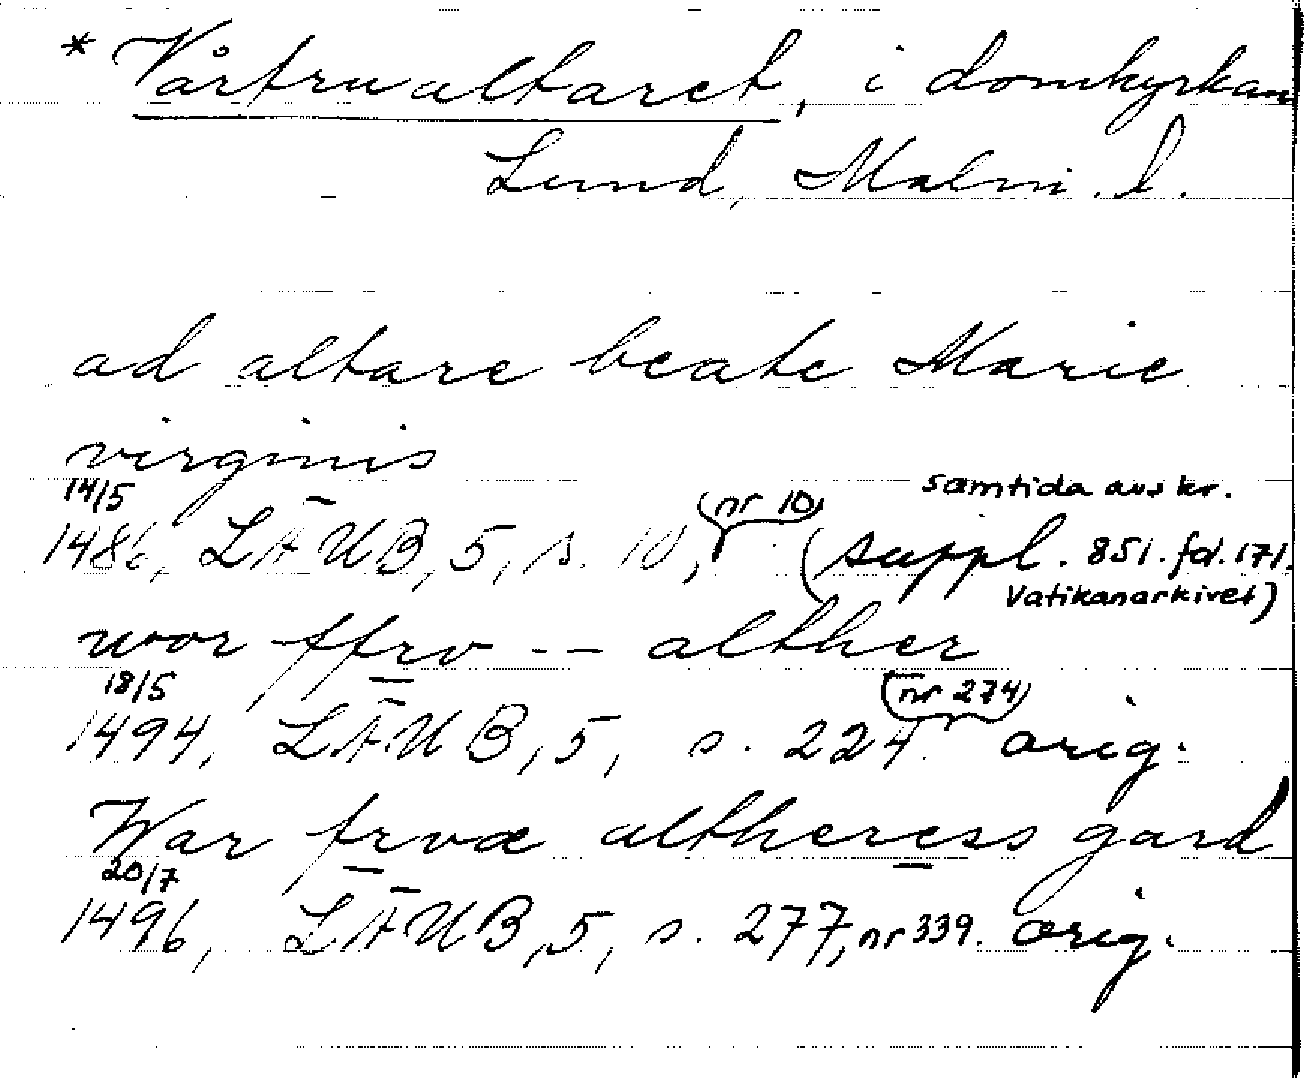 * Vårfrualtaret, i domkyrkan
Lund, Malm. l.
ad altare beate Marie
virginis
14/5 samtida avskr.
1486, LÄUB, 5, s. 10, (nr 10) (suppl. 851. fol. 171.
Vatikanarkivet)
wor ffrv -- alther
18/5
1494, LÄUB, 5, s. 224 (nr 274) orig.
War frvæ altheress gard
20/7
1496, LÄUB, 5, s. 277, nr 339. orig.